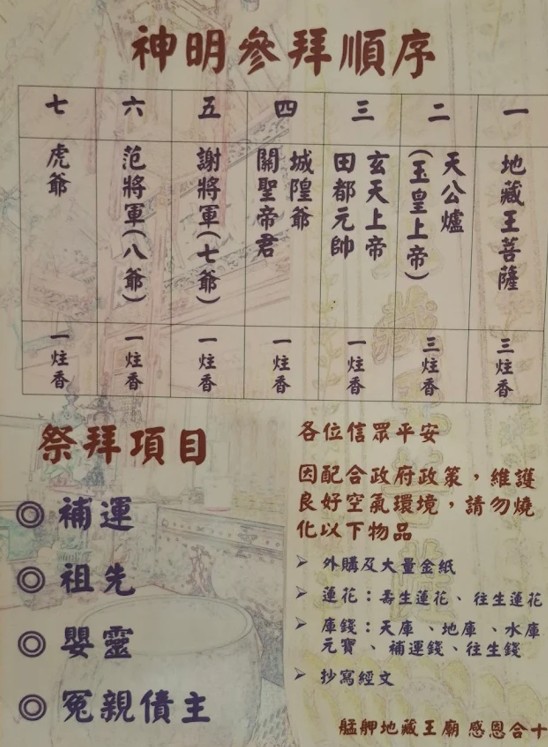 神明參拜順序
一
地藏王菩薩
三炷香
二
天公爐
(玉皇上帝)
三炷香
三
玄天上帝
田都元帥
一炷香
四
城隍爺
關聖帝君
一炷香
五
謝將軍(七爺)
一炷香
六
范將軍(八爺)
一炷香
七
虎爺
一炷香
祭拜項目
◎ 補運
◎ 祖先
◎ 嬰靈
◎ 冤親債主
各位信眾平安
因配合政府政策，維護
良好空氣環境，請勿燒
化以下物品
➢ 外購及大量金紙
➢ 蓮花：壽生蓮花、往生蓮花
➢ 庫錢：天庫、地庫、水庫
元寶、補運錢、往生錢
➢ 抄寫經文
艋舺地藏王廟 感恩合十